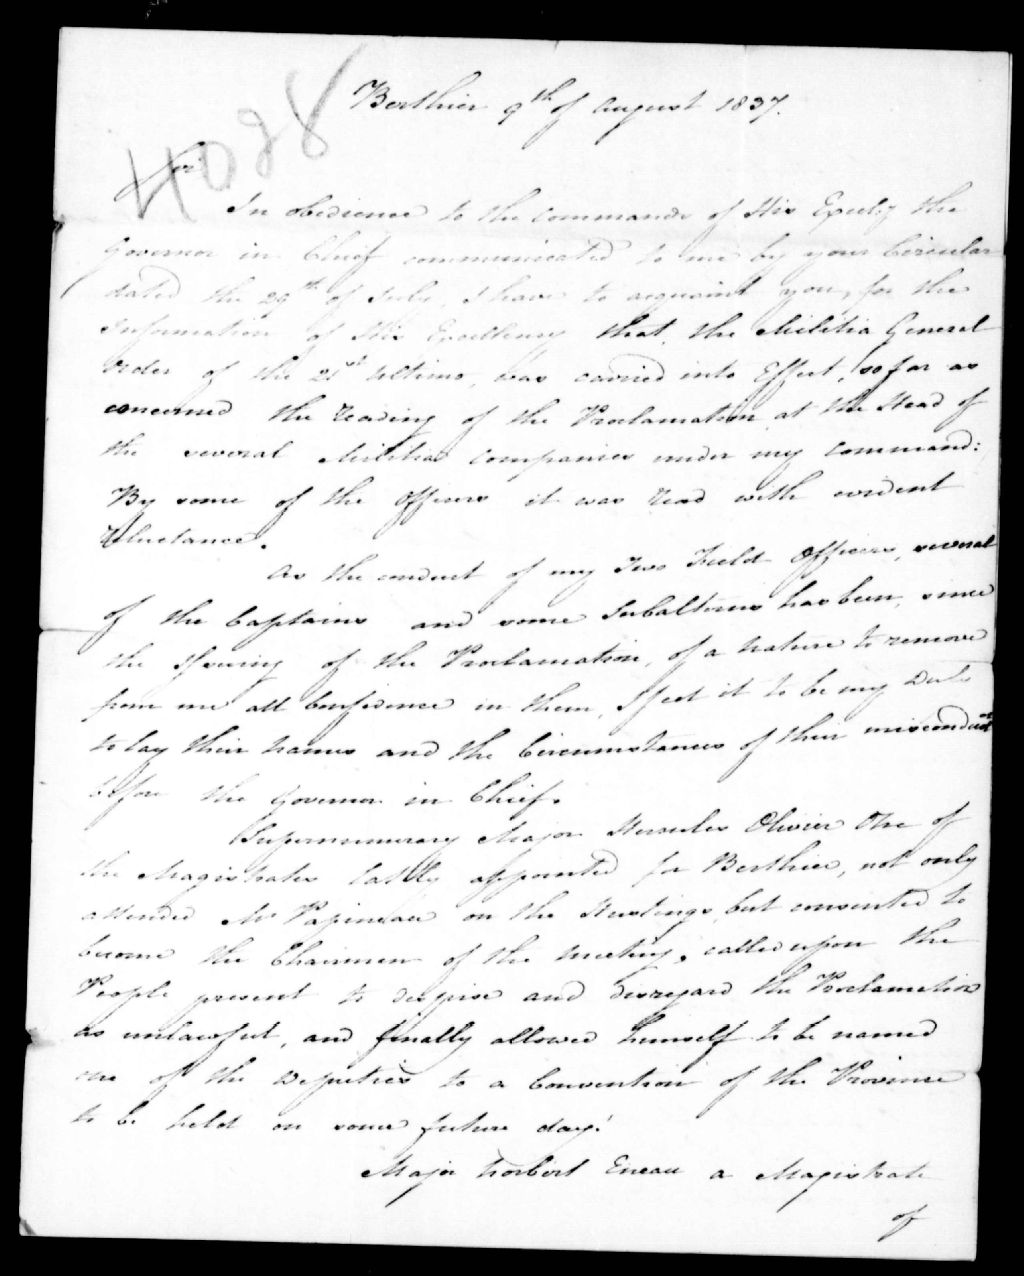 Berthier 9th of August 1837.
4028
Sir
In obedience to the commands of His Excely the
Governor in Chief communicated to me by your Circular
dated the 29th of July, I have to acquaint you, for the
Information of His Excellency that, the Militia General
Order of the 21st Ultimo, was carried into Effect, so far as
concerned the reading of the Proclamation at the Head of
the several Militia companies under my command:
By some of the Officers it was read with evident
reluctance.
As the conduct of my Two Field Officers, several
of the Captains and some Subalterns has been, since
the Issuing of the Proclamation, of a nature to remove
from me all Confidence in them, I feel it to be my Duty
to lay their names and the Circumstances of their misconduct
before the Governor in Chief.
Supernumerary Major Hercules Olivier One of
the Magistrates lately appointed for Berthier, not only
attended Mr Papineau on the Hustings, but consented to
become the Chairman of the meeting, called upon the
People present to despise and disregard the Proclamation
as unlawful, and finally allowed himself to be named
one of the Deputies to a Convention of the Province
to be held on some future day!
Major Norbert Eneau a Magistrate
of